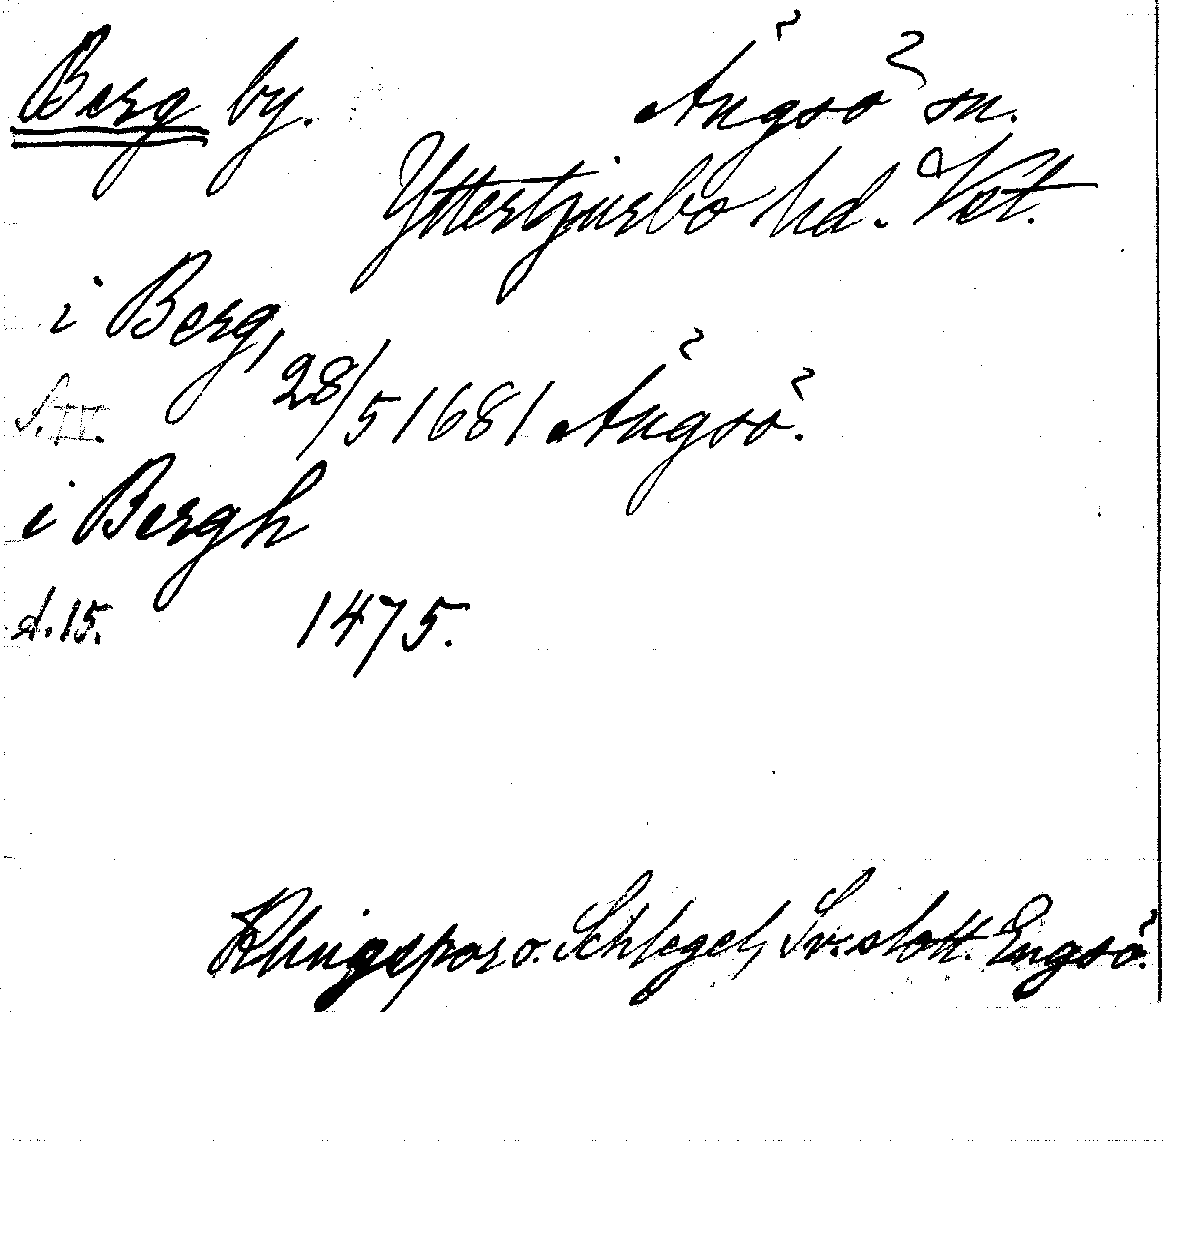 Berg by. Ängsö sn.
Yttertjurbo hd. Vst.
i Berg,
28/5 1681 Ängsö.
S. IV.
i Bergh
d. 15. 1475.
Klingspor o. Schlegel, Sv. slott. Engsö.